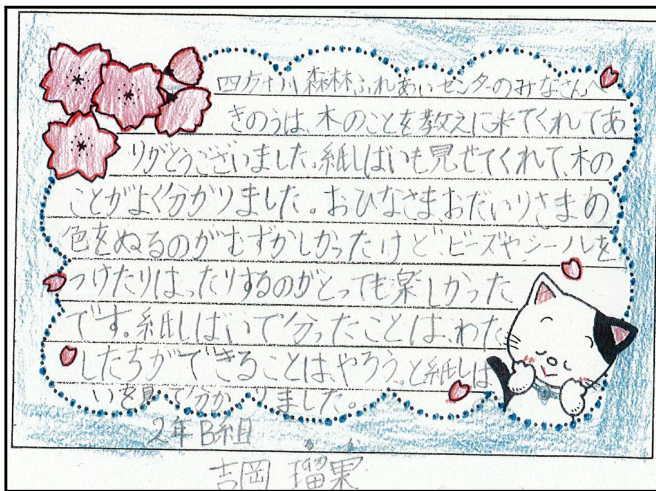 四万十川森林ふれあいセンターのみなさんへ
きのうは、木のことを教えに来てくれてあ
りがとうございました。紙しばいも見せてくれて、木の
ことがよく分かりました。おひなさまおだいりさまの
色をぬるのがむずかしかったけどビーズやシールを
つけたりはったりするのがとっても楽しかった
です。紙しばいで分ったことは、わた
したちができることは、やろう。と紙しば
いを見て分かりました。
2年B組
るみ
吉岡 瑠実